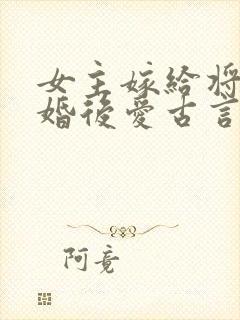 女主嫁給將
婚後愛古言
阿竟